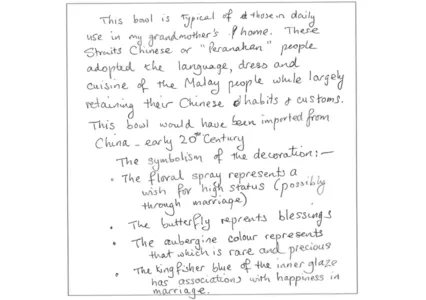 This bowl is typical of those in daily
use in my grandmother's home. These
Straits Chinese or "Peranakan" people
adopted the language, dress and
cuisine of the Malay people while largely
retaining their Chinese habits & customs.
This bowl would have been imported from
China - early 20th Century
The symbolism of the decoration:-
• The floral spray represents a
wish for high status (possibly
through marriage)
• The butterfly reprents blessings
• The aubergine colour represents
that which is rare and precious
• The kingfisher blue of the inner glaze
has associations with happiness in
marriage.